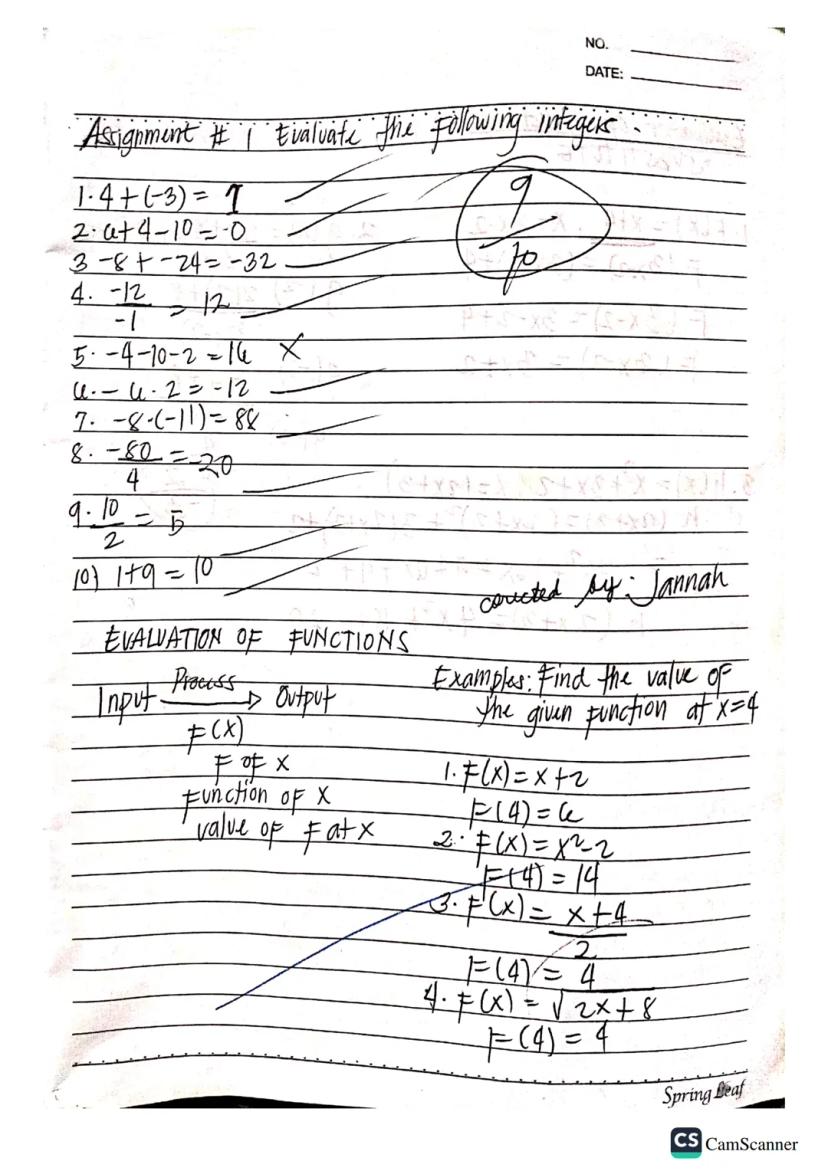 NO.
DATE:
Assignment # 1 Evaluate the Following integers.
1. 4 + (-3) = 1
2. 6 + 4 - 10 = 0
3 -8 + -24 = -32
4. -12 / -1 = 12
5. -4 - 10 - 2 = 16 X
6. - 6 · 2 = -12
7. -8 · (-11) = 88
8. -80 / 4 = -20
9. 10 / 2 = 5
10) 1 + 9 = 10
9 / 10
corrected by: Jannah
EVALUATION OF FUNCTIONS
Input Process → Output
F(X)
F OF X
Function OF X
value OF F at X
Examples: Find the value of
the given function at x=4
1. F(X) = X + 2
F(4) = 6
2. F(X) = X² - 2
F(4) = 14
3. F(X) = X + 4 / 2
F(4) = 4
4. F(X) = √2X + 8
F(4) = 4
Spring Leaf
CS CamScanner